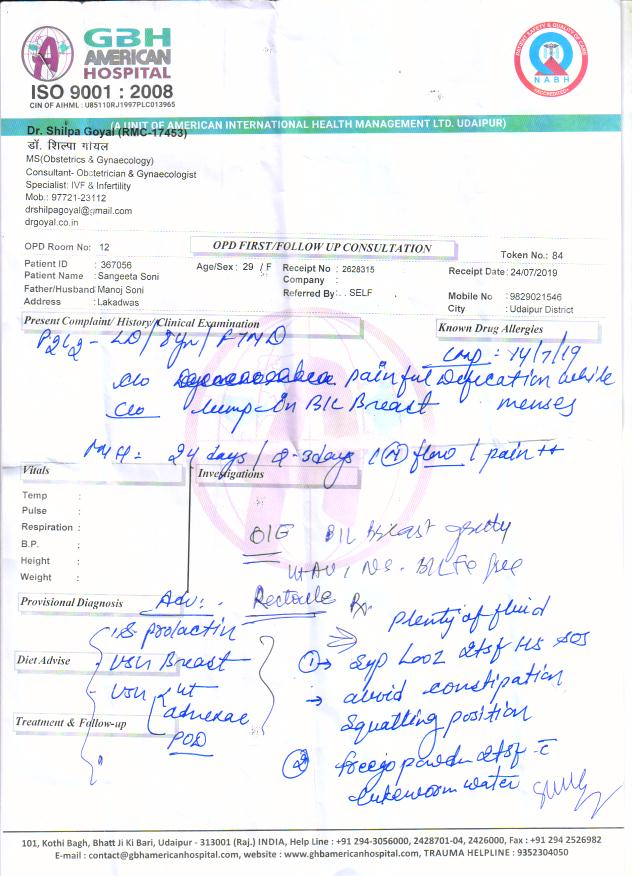 GBH
AMERICAN
HOSPITAL
ISO 9001 : 2008
CIN OF AIHML : U85110RJ1997PLC013965
PATIENT SAFETY & QUALITY OF CARE
NABH
ACCREDITED
(A UNIT OF AMERICAN INTERNATIONAL HEALTH MANAGEMENT LTD. UDAIPUR)
Dr. Shilpa Goyal (RMC-17453)
डॉ. शिल्पा गोयल
MS(Obstetrics & Gynaecology)
Consultant- Obstetrician & Gynaecologist
Specialist: IVF & Infertility
Mob.: 97721-23112
drshilpagoyal@gmail.com
drgoyal.co.in
OPD Room No: 12
OPD FIRST/FOLLOW UP CONSULTATION
Token No.: 84
Patient ID : 367056
Patient Name : Sangeeta Soni
Father/Husband Manoj Soni
Address : Lakadwas
Age/Sex: 29 / F
Receipt No : 2628315
Company :
Referred By: . . SELF
Receipt Date: 24/07/2019
Mobile No : 9829021546
City : Udaipur District
Present Complaint/ History/Clinical Examination
Known Drug Allergies
P2L2 - LD / 8yr / FTND
LMP : 14/7/19
c/o painful defication while
menses
c/o lump in B/L Breast
M/H: 24 days / 2-3days / (N) flow / pain ++
Vitals
Investigations
Temp :
Pulse :
Respiration :
B.P. :
Height :
Weight :
O/E B/L Breast
Ut AV, NS. B/L Fx free
Provisional Diagnosis
Adv:
Rx
S. prolactin
Plenty of fluid
Diet Advise
USG Breast
① → Syp Looz 2tsf HS SOS
USG ut
adnexae
POD
→ avoid constipation
Squatting position
Treatment & Follow-up
② powder 2tsf c̄
lukewarm water
101, Kothi Bagh, Bhatt Ji Ki Bari, Udaipur - 313001 (Raj.) INDIA, Help Line : +91 294-3056000, 2428701-04, 2426000, Fax : +91 294 2526982
E-mail : contact@gbhamericanhospital.com, website : www.gbhamericanhospital.com, TRAUMA HELPLINE : 9352304050